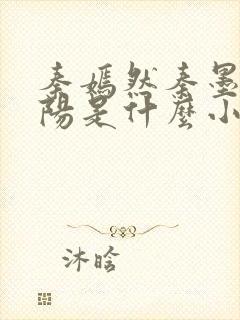 秦嫣然秦墨
陽是什麼小
沐晗